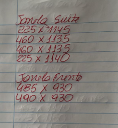 Janela Suite
225 X 1145
460 X 1135
460 X 1135
225 X 1140
Janela
485 X 930
490 X 930